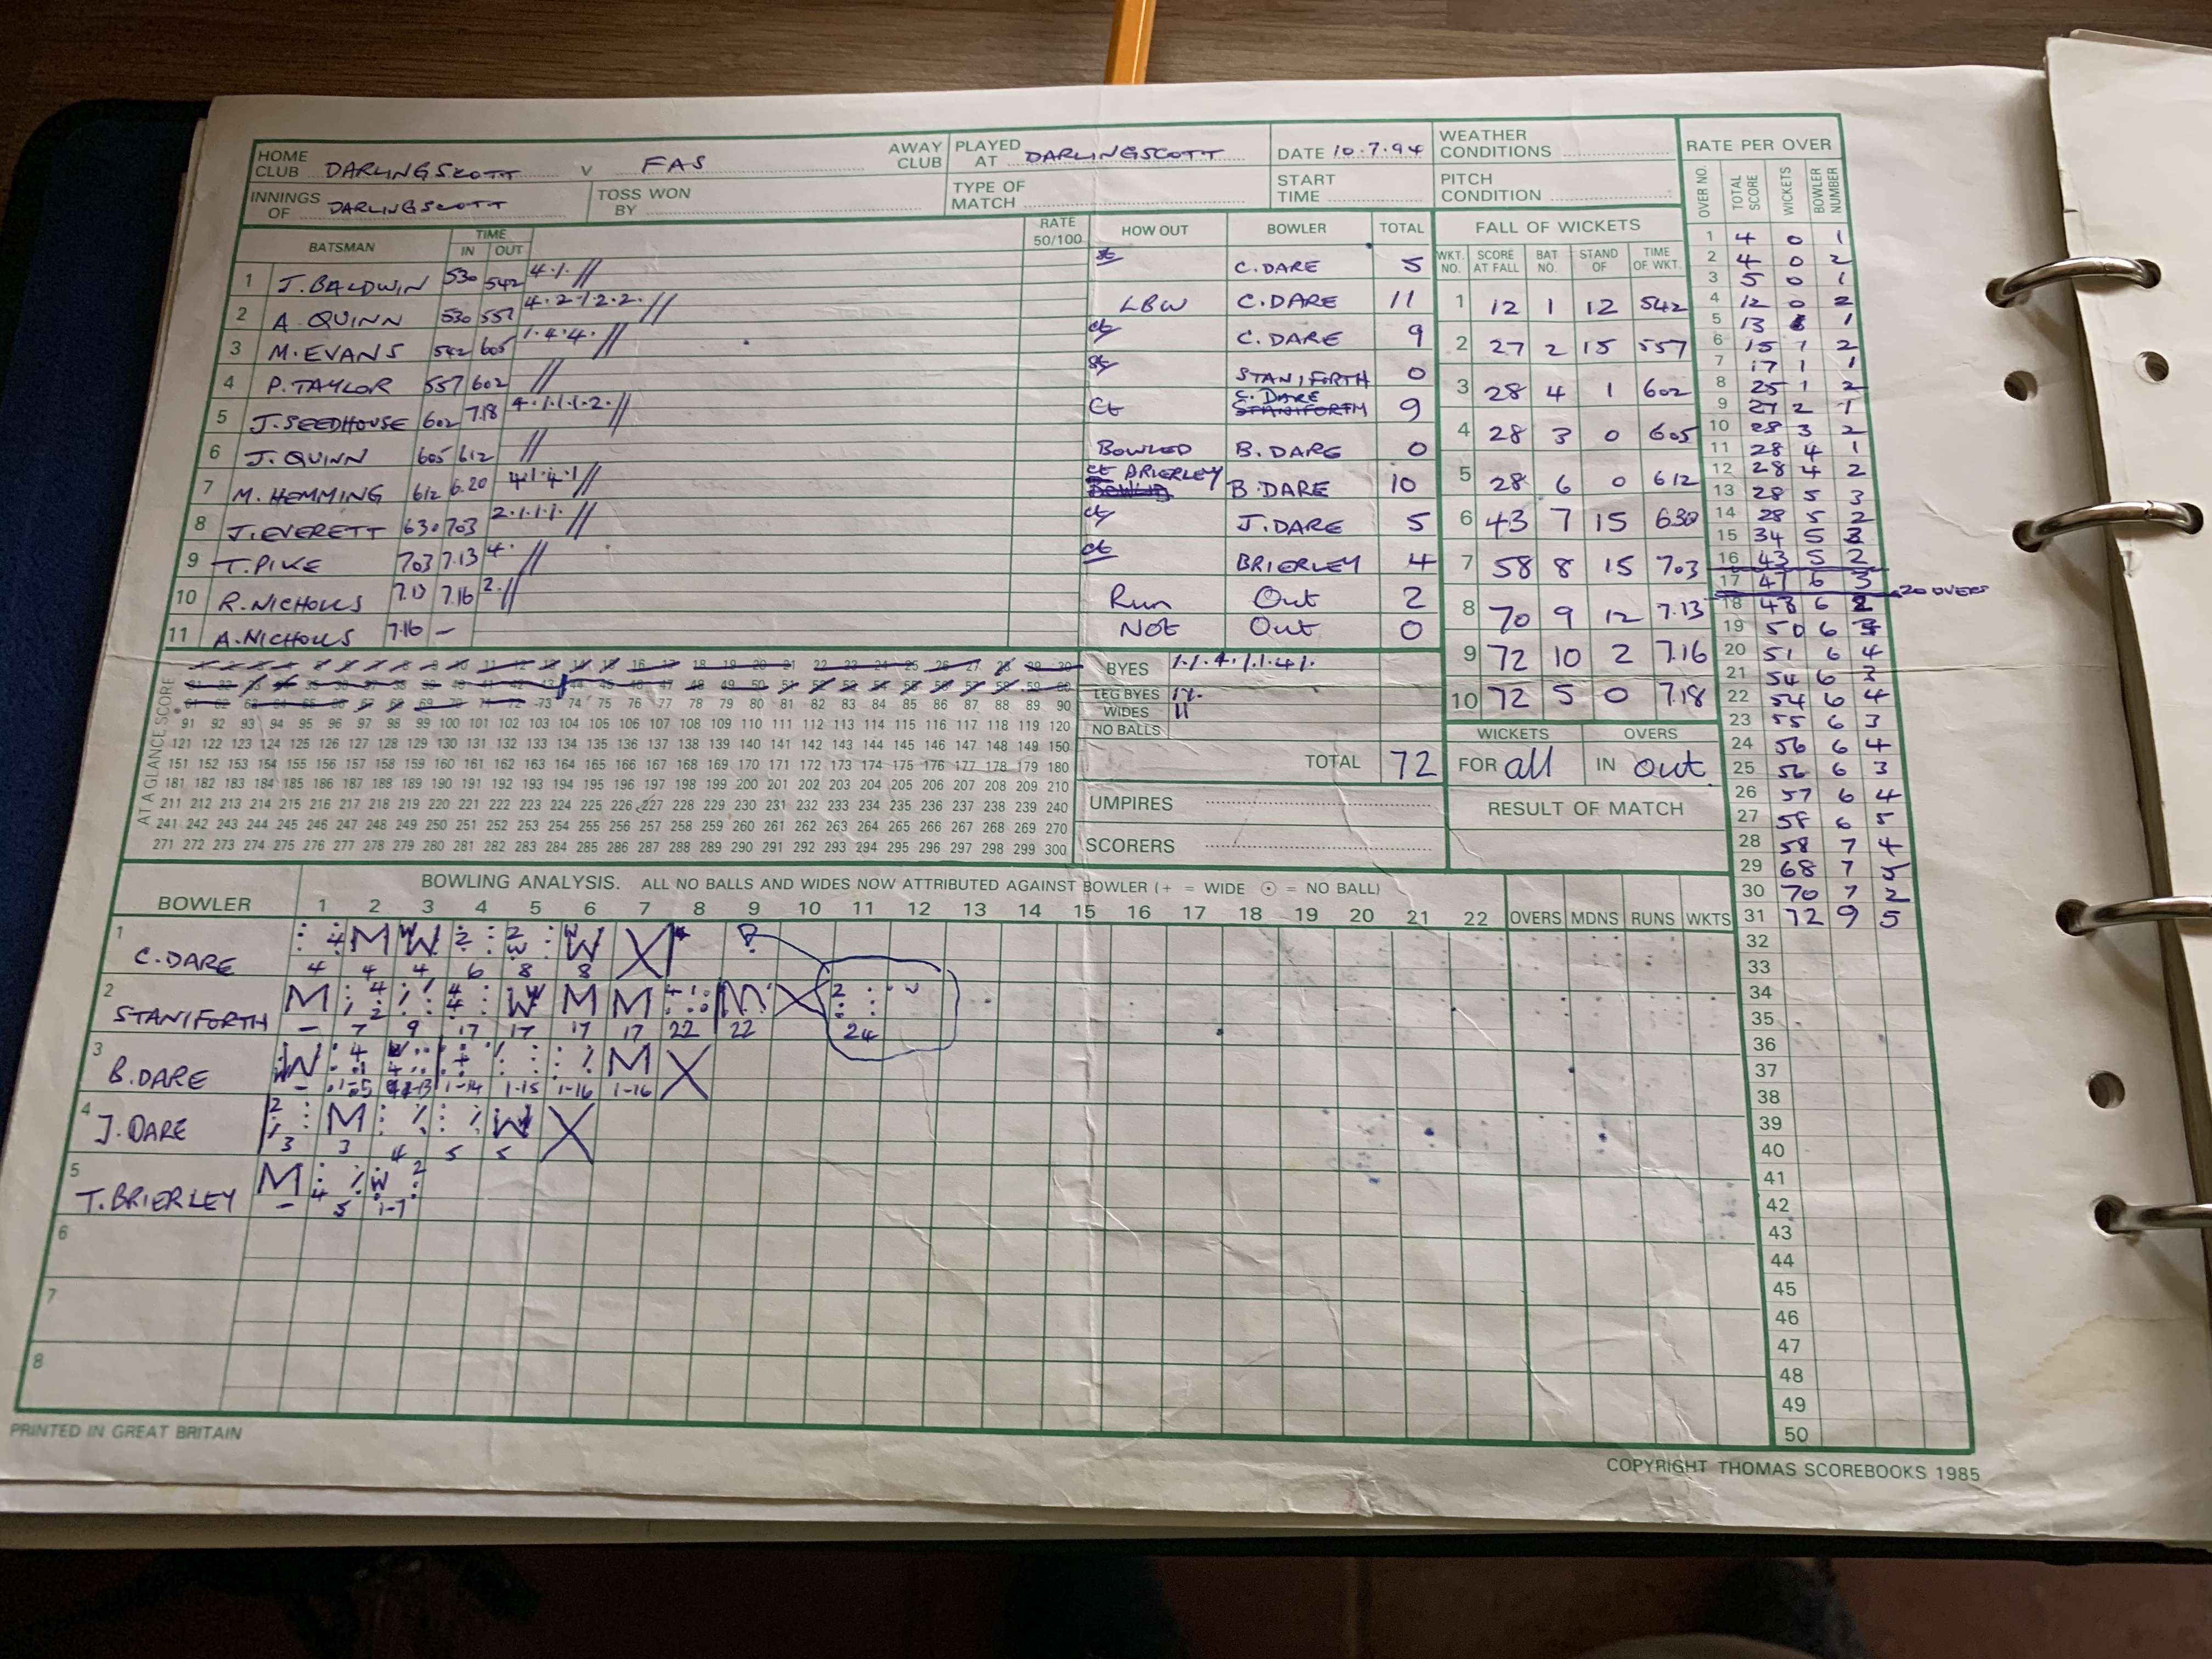 HOME CLUB DARLINGSCOTT v FAS AWAY CLUB PLAYED AT DARLINGSCOTT DATE 10.7.94 WEATHER CONDITIONS
INNINGS OF DARLINGSCOTT TOSS WON BY TYPE OF MATCH START TIME PITCH CONDITION
RATE PER OVER
OVER NO. TOTAL SCORE WICKETS BOWLER NUMBER
BATSMAN TIME IN OUT RATE 50/100 HOW OUT BOWLER TOTAL
1 J. BALDWIN 530 542 4·1· // st C. DARE 5
2 A. QUINN 530 557 4·2·1·2·2· // LBW C. DARE 11
3 M. EVANS 542 605 1·4·4· // ct C. DARE 9
4 P. TAYLOR 557 602 // st STANIFORTH 0
5 J. SEEDHOUSE 602 7.18 4·1·1·1·2· // Ct C. DARE STANIFORTH 9
6 J. QUINN 605 612 // BOWLED B. DARE 0
7 M. HEMMING 612 6.20 4·1·4·1 // ct BRIERLEY BOWLED B. DARE 10
8 J. EVERETT 630 703 2·1·1·1· // ct J. DARE 5
9 T. PIKE 703 7.13 4· // ct BRIERLEY 4
10 R. NICHOLLS 7.13 7.16 2· // Run Out 2
11 A. NICHOLLS 7.16 — Not Out 0
FALL OF WICKETS
WKT. NO. SCORE AT FALL BAT NO. STAND OF TIME OF WKT.
1 12 1 12 542
2 27 2 15 557
3 28 4 1 602
4 28 3 0 605
5 28 6 0 612
6 43 7 15 630
7 58 8 15 703
8 70 9 12 7.13
9 72 10 2 7.16
10 72 5 0 7.18
WICKETS OVERS
FOR all IN out
RESULT OF MATCH
AT A GLANCE SCORE
1 2 3 4 5 6 7 8 9 10 11 12 13 14 15 16 17 18 19 20 21 22 23 24 25 26 27 28 29 30
31 32 33 34 35 36 37 38 39 40 41 42 43 44 45 46 47 48 49 50 51 52 53 54 55 56 57 58 59 60
61 62 63 64 65 66 67 68 69 70 71 72 73 74 75 76 77 78 79 80 81 82 83 84 85 86 87 88 89 90
91 92 93 94 95 96 97 98 99 100 101 102 103 104 105 106 107 108 109 110 111 112 113 114 115 116 117 118 119 120
121 122 123 124 125 126 127 128 129 130 131 132 133 134 135 136 137 138 139 140 141 142 143 144 145 146 147 148 149 150
151 152 153 154 155 156 157 158 159 160 161 162 163 164 165 166 167 168 169 170 171 172 173 174 175 176 177 178 179 180
181 182 183 184 185 186 187 188 189 190 191 192 193 194 195 196 197 198 199 200 201 202 203 204 205 206 207 208 209 210
211 212 213 214 215 216 217 218 219 220 221 222 223 224 225 226 227 228 229 230 231 232 233 234 235 236 237 238 239 240
241 242 243 244 245 246 247 248 249 250 251 252 253 254 255 256 257 258 259 260 261 262 263 264 265 266 267 268 269 270
271 272 273 274 275 276 277 278 279 280 281 282 283 284 285 286 287 288 289 290 291 292 293 294 295 296 297 298 299 300
BYES 1·1·4·1·1·4·1·
LEG BYES
WIDES 11
NO BALLS
TOTAL 72
UMPIRES
SCORERS
1 4 0 1
2 4 0 2
3 5 0 1
4 12 0 2
5 13 1
6 15 1 2
7 17 1 1
8 25 1 2
9 27 2 1
10 28 3 2
11 28 4 1
12 28 4 2
13 28 5 3
14 28 5 2
15 34 5 3
16 43 5 2
17 47 6 3
20 OVERS
18 48 6 2
19 50 6
20 51 6 4
21 54 6 3
22 54 6 4
23 55 6 3
24 56 6 4
25 56 6 3
26 57 6 4
27 58 6 5
28 58 7 4
29 68 7 5
30 70 7 2
31 72 9 5
32
33
34
35
36
37
38
39
40
41
42
43
44
45
46
47
48
49
50
BOWLING ANALYSIS. ALL NO BALLS AND WIDES NOW ATTRIBUTED AGAINST BOWLER (+ = WIDE ⊙ = NO BALL)
BOWLER 1 2 3 4 5 6 7 8 9 10 11 12 13 14 15 16 17 18 19 20 21 22 OVERS MDNS RUNS WKTS
1 C. DARE 4 M W 2 2 W W X
4 4 4 6 8 8
2 STANIFORTH M W M M M X
— 7 9 17 17 17 17 22 22 24
3 B. DARE W M X
— 1-14 1-15 1-16 1-16
4 J. DARE 2 M W X
3 3 4 5 5
5 T. BRIERLEY M 4 W 2
— 5 1-7
6
7
8
PRINTED IN GREAT BRITAIN
COPYRIGHT THOMAS SCOREBOOKS 1985